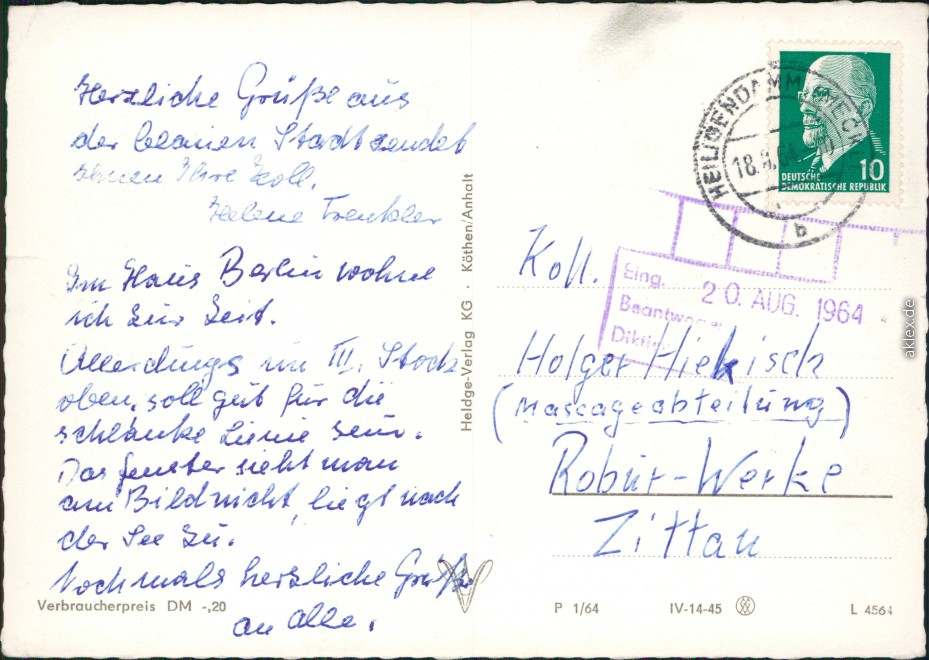 Herzliche Grüße aus
der Stadt sendet
Ihnen Ihre Koll.
Helene
Im Haus Berlin wohne
ich zur Zeit.
Allerdings im III. Stock
oben, soll gut für die
schlanke Linie sein.
Das Fenster sieht man
am Bild nicht, liegt nach
der See zu.
Nochmals herzliche Grüße
an alle.
Verbraucherpreis DM -,20
Heldge-Verlag KG · Köthen/Anhalt
HEILIGENDAMM MECK
18. 64
b
10
DEUTSCHE
DEMOKRATISCHE REPUBLIK
Eing. 20. AUG. 1964
Beantw
Dikt
Koll.
Holger Hiekisch
(Massageabteilung)
Robur-Werke
Zittau
P 1/64 IV-14-45 L 4564
aklex.de